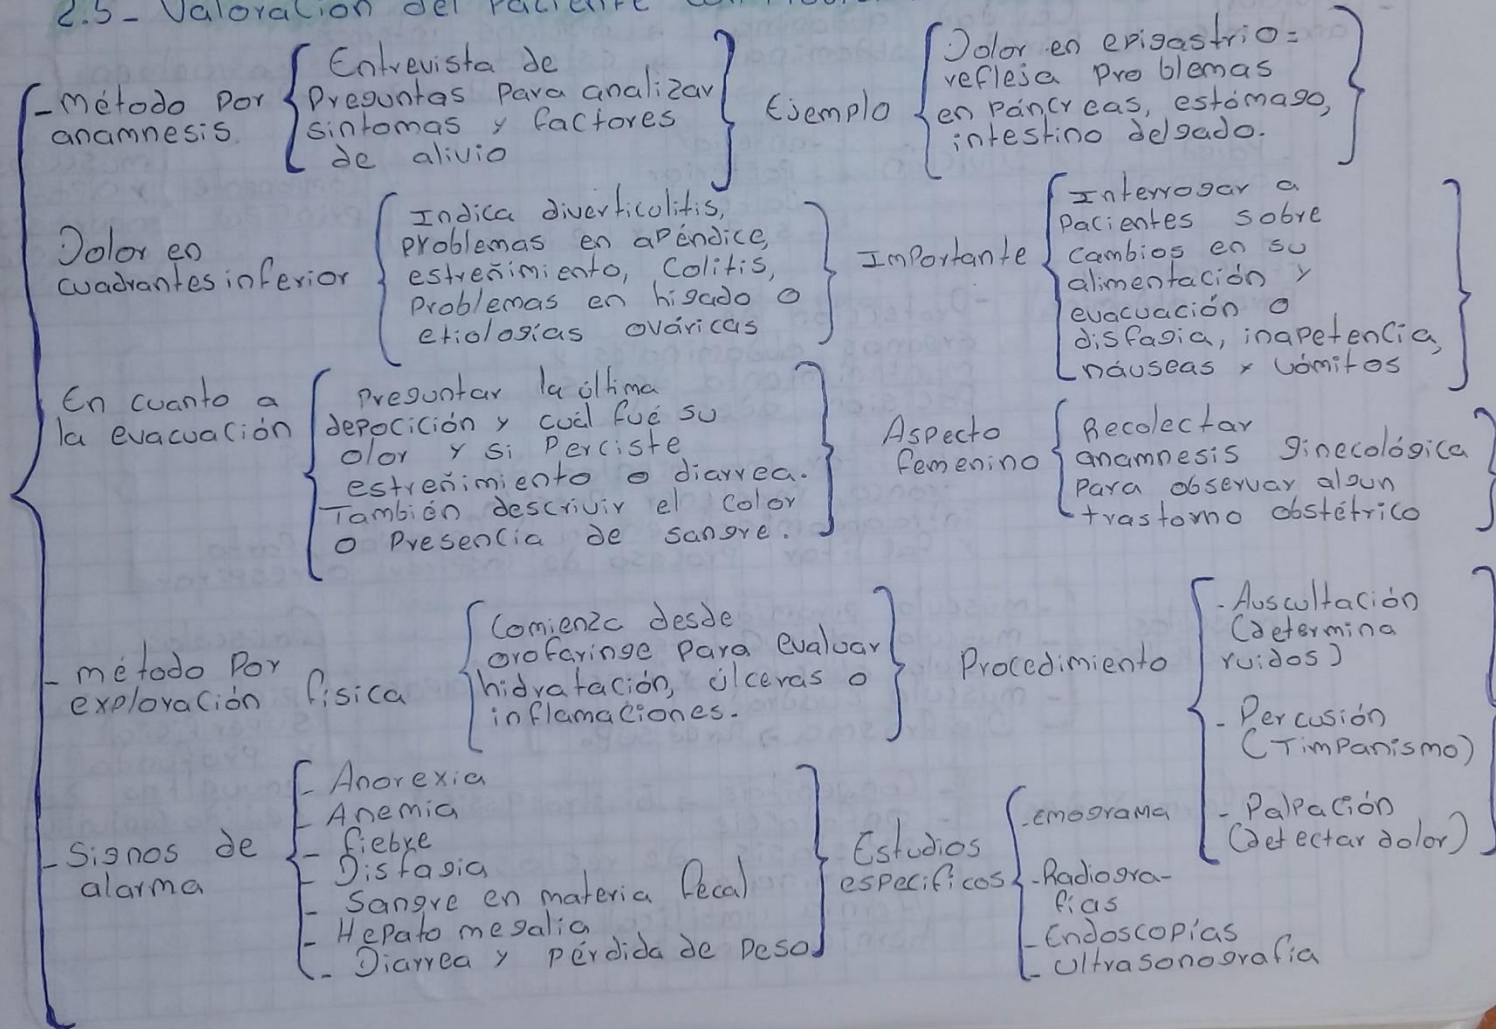 2.5- Valoración del Paciente con
- método Por
anamnesis.
Entrevista de
Preguntas Para analizar
sintomas y factores
de alivio
Ejemplo
Dolor en epigastrio=
refleja Problemas
en Páncreas, estómago,
intestino delgado.
Dolor en
cuadrantes inferior
Indica diverticulitis,
problemas en apéndice,
estreñimiento, Colitis,
Problemas en higado o
etiologías ováricas
Importante
Interrogar a
Pacientes sobre
cambios en su
alimentación y
evacuación o
disfagia, inapetencia,
náuseas y vómitos
En cuanto a
la evacuación
Preguntar la última
deposición y cuál fué su
olor y si Perciste
estreñimiento o diarrea.
También descrivir el color
o Presencia de sangre.
Aspecto
femenino
Recolectar
anamnesis ginecológica
Para observar algun
trastorno obstétrico
- método Por
exploración física
Comienza desde
orofaringe Para evaluar
hidratación, úlceras o
inflamaciones.
Procedimiento
- Auscultación
(determina
ruidos)
- Percusión
(Timpanismo)
- Palpación
(detectar dolor)
- Signos de
alarma
- Anorexia
- Anemia
- fiebre
- Disfagia
- Sangre en materia fecal
- Hepato megalia
- Diarrea y pérdida de peso
Estudios
especificos
- emograma
- Radiogra-
fias
- Endoscopías
- Ultrasonografía